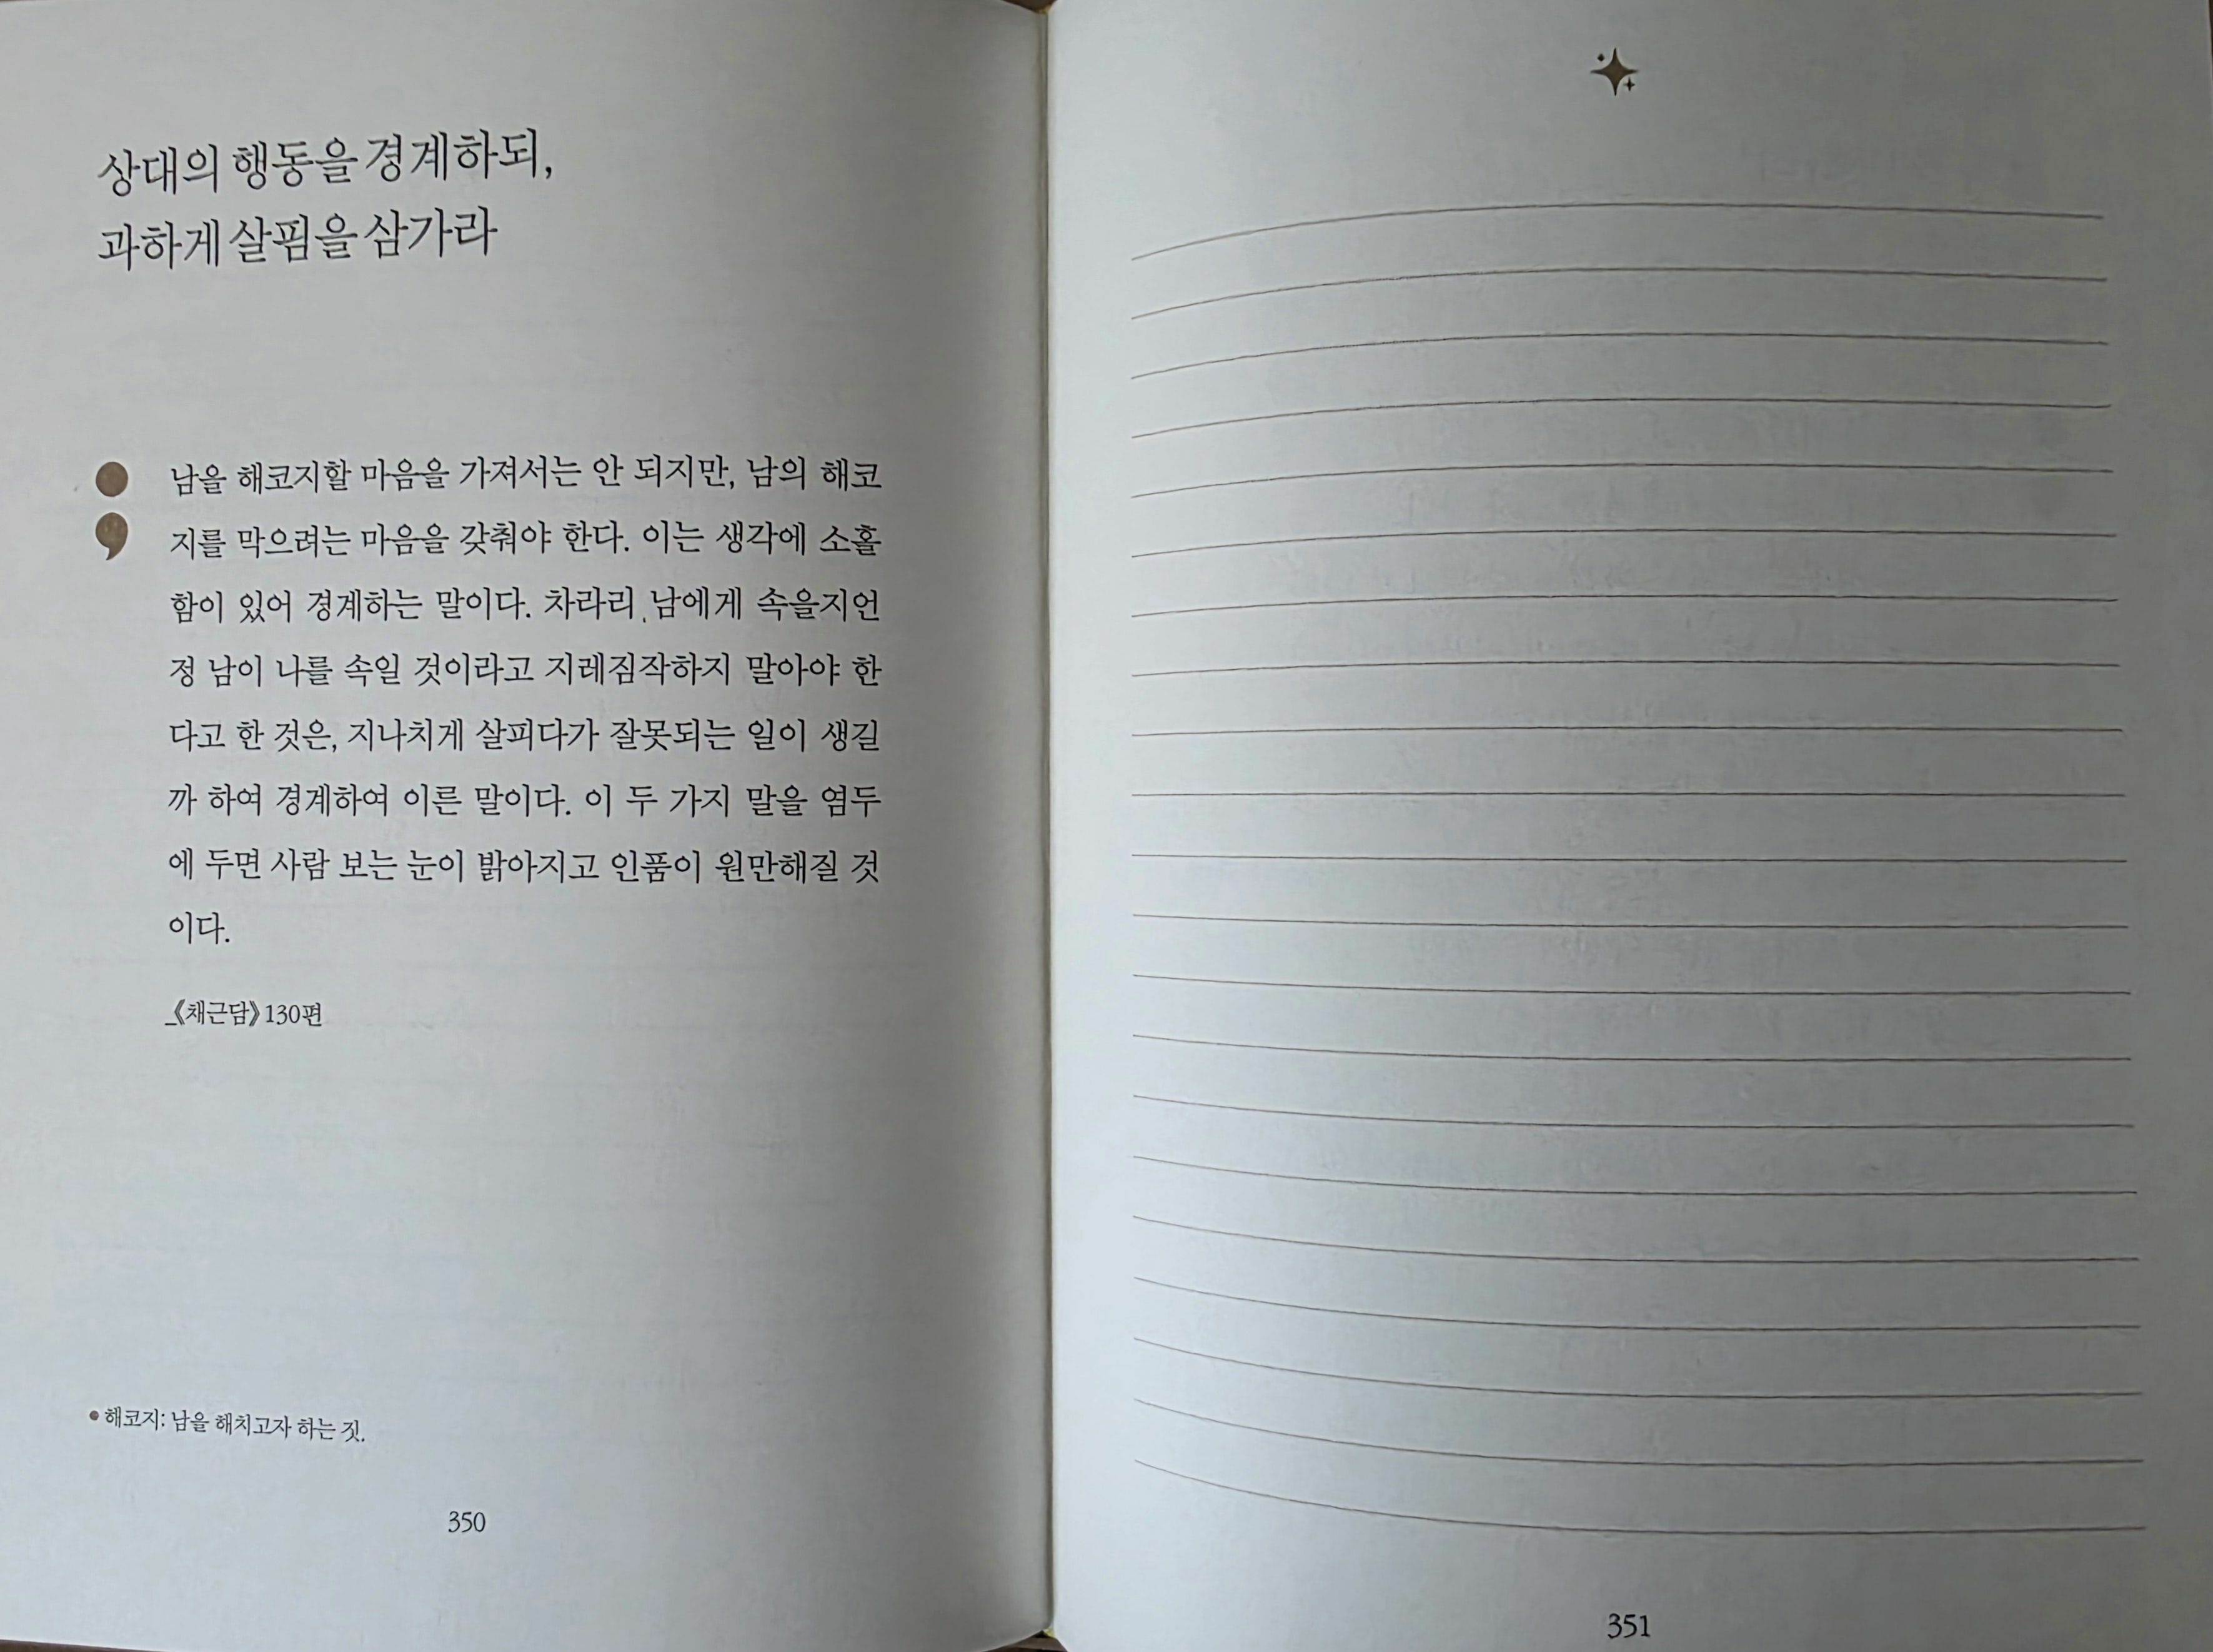 상대의 행동을 경계하되,
과하게 살핌을 삼가라
남을 해코지할 마음을 가져서는 안 되지만, 남의 해코
지를 막으려는 마음을 갖춰야 한다. 이는 생각에 소홀
함이 있어 경계하는 말이다. 차라리 남에게 속을지언
정 남이 나를 속일 것이라고 지레짐작하지 말아야 한
다고 한 것은, 지나치게 살피다가 잘못되는 일이 생길
까 하여 경계하여 이른 말이다. 이 두 가지 말을 염두
에 두면 사람 보는 눈이 밝아지고 인품이 원만해질 것
이다.
_《채근담》 130편
• 해코지: 남을 해치고자 하는 짓.
350
351